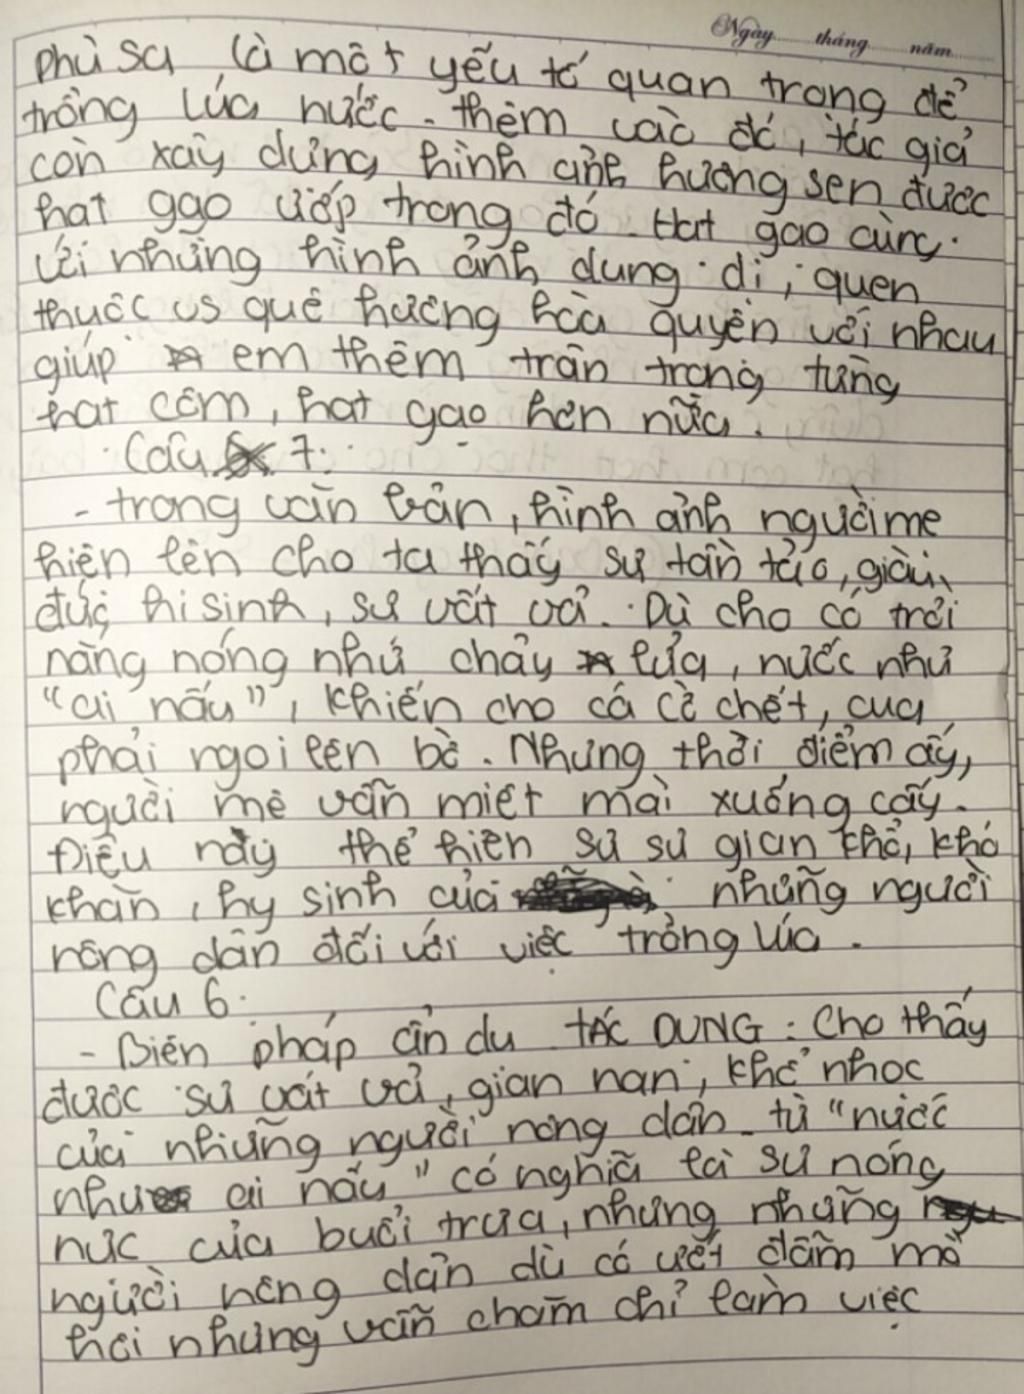 Ngày tháng năm
phù sa là một yếu tố quan trọng để
trồng lúa nước. thêm vào đó, tác giả
còn xây dựng hình ảnh hương sen được
hạt gạo ướp trong đó. Hạt gạo cùng
với những hình ảnh dung dị, quen
thuộc vs quê hương hòa quyện với nhau
giúp em thêm trân trọng từng
hạt cơm, hạt gạo hơn nữa.
Câu 7:
- trong văn bản, hình ảnh người mẹ
hiện lên cho ta thấy sự tần tảo, giàu
đức hi sinh, sự vất vả. Dù cho có trời
nắng nóng như chảy lửa, nước như
"ai nấu", khiến cho cá cờ chết, cua
phải ngoi lên bờ. Nhưng thời điểm ấy,
người mẹ vẫn miệt mài xuống cấy.
Điều này thể hiện sự sự gian khổ, khó
khăn, hy sinh của những người
nông dân đối với việc trồng lúa.
Câu 6:
- Biện pháp ẩn dụ TÁC DỤNG: Cho thấy
được sự vất vả, gian nan, khổ nhọc
của những người nông dân. từ "nước
như ai nấu" có nghĩa là sự nóng
nực của buổi trưa, nhưng những
người nông dân dù có ướt đẫm mồ
hôi nhưng vẫn chăm chỉ làm việc